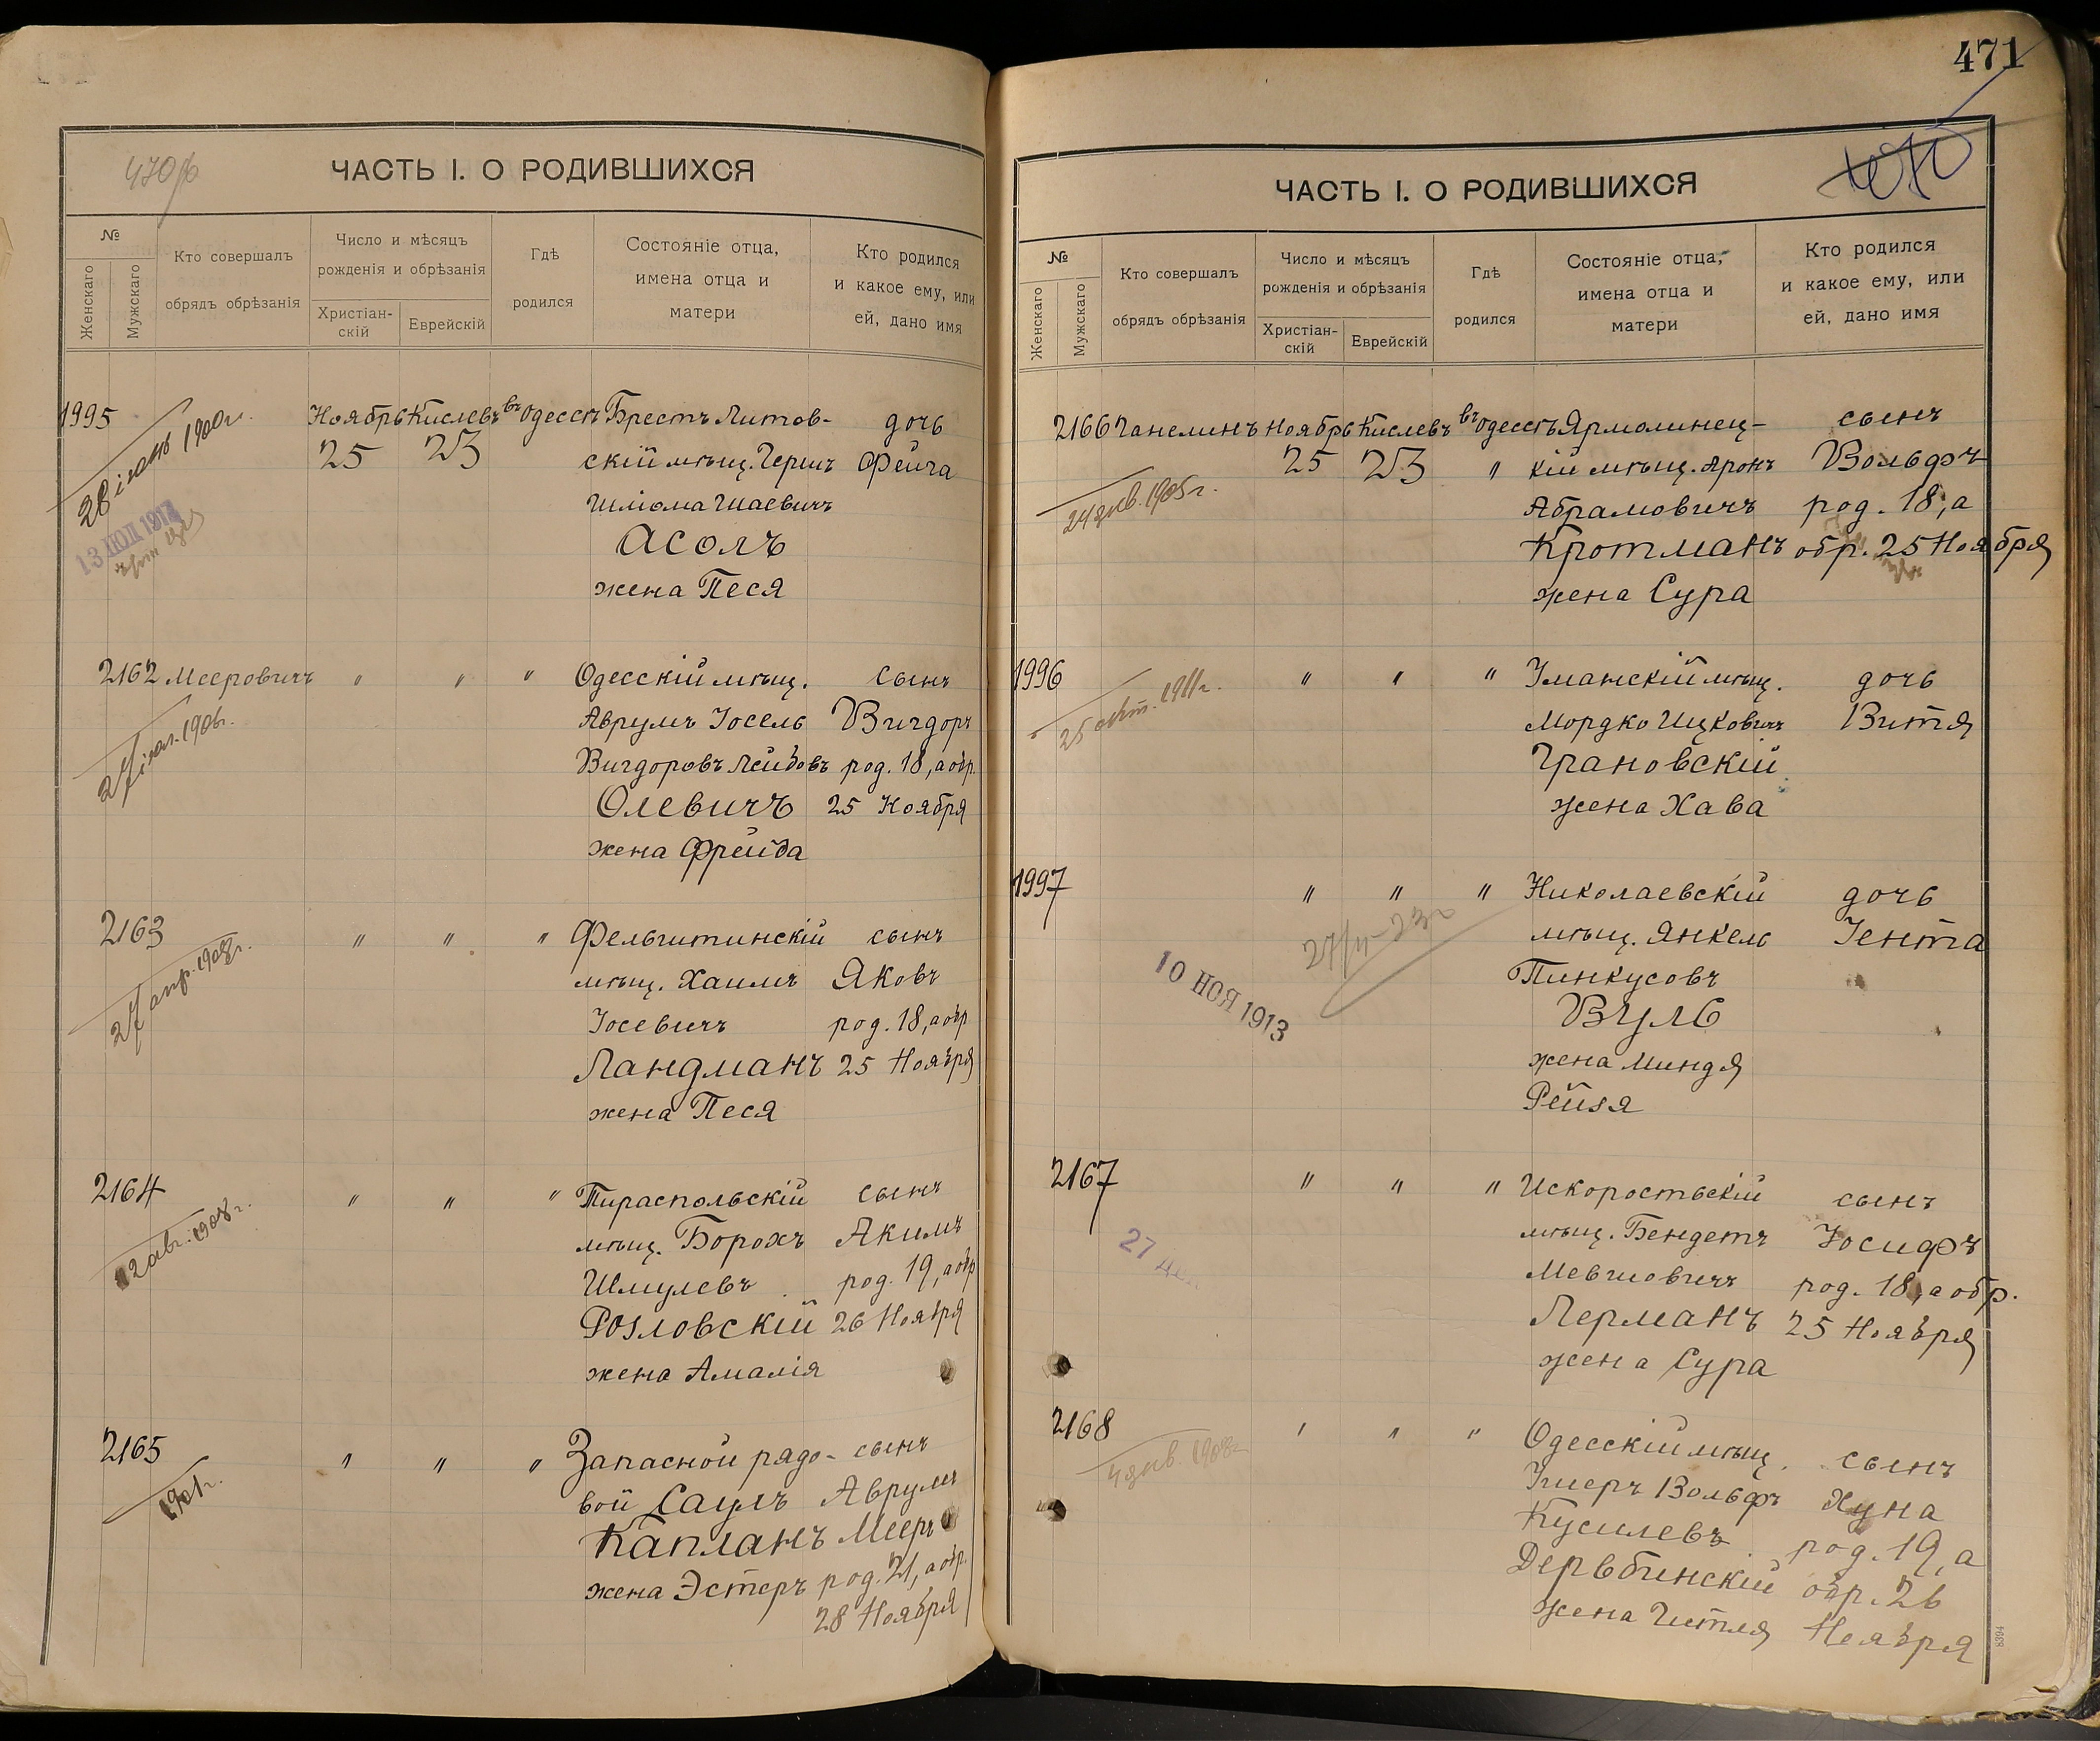 ЧАСТЬ I. О РОДИВШИХСЯ
№
Женскаго
Мужскаго
Кто совершалъ
обрядъ обрѣзанія
Число и мѣсяцъ
рожденія и обрѣзанія
Христіан-
скій
Еврейскій
Гдѣ
родился
Состояніе отца,
имена отца и
матери
Кто родился
и какое ему, или
ей, дано имя
1995 Ноябрь Кислевъ въ Одессѣ Брестъ Литов- дочь
25 23 скій мѣщ. Гершъ Фейга
Шліома Шаевичъ
Асолъ
жена Песя
13 ІЮЛ 1912
2162 Мееровичъ " " " Одесскій мѣщ. сынъ
Аврумъ Іосель Вигдоръ
Вигдоровъ Лейбовъ род. 18, а обр.
Олевичъ 25 Ноября
жена Фрейда
2163 " " " Фельштинскій сынъ
27 апр. 1908г.
мѣщ. Хаимъ Яковъ
Іосевичъ род. 18, а обр
Ландманъ 25 Ноября
жена Песя
2164 " " " Тираспольскій сынъ
12 авг. 1908г.
мѣщ. Борохъ Акимъ
Шмулевъ род. 19, а обр
Розловскій 26 Ноября
жена Амалія
2165 " " " Запасной рядо- сынъ
вой Саулъ Аврумъ
Капланъ Мееръ
жена Эстеръ род. 21, а обр.
28 Ноября
471
ЧАСТЬ I. О РОДИВШИХСЯ
№
Женскаго
Мужскаго
Кто совершалъ
обрядъ обрѣзанія
Число и мѣсяцъ
рожденія и обрѣзанія
Христіан-
скій
Еврейскій
Гдѣ
родился
Состояніе отца,
имена отца и
матери
Кто родился
и какое ему, или
ей, дано имя
2166 Ганелинъ Ноябрь Кислевъ въ Одессѣ Ярмолинец- сынъ
25 23 " кій мѣщ. Аронъ Вольфъ
Абрамовичъ род. 18, а
Кротманъ обр. 25 Ноября
жена Сура
1996 " " " Уманскій мѣщ. дочь
25 окт. 1911г.
Мордко Ицковичъ Витя
Грановскій
жена Хава
1997 " " " Николаевскій дочь
мѣщ. Янкель Іента
Пинкусовъ
10 НОЯ 1913
Вуль
жена Миндя
Рейзя
2167 " " " Искоростьскій сынъ
мѣщ. Бендетъ Іосифъ
Мевшовичъ род. 18, а обр.
Лерманъ 25 Ноября
жена Сура
2168 " " " Одесскій мѣщ. сынъ
Ушеръ Вольфъ Хуна
Кусилевъ род. 19, а
Дервбинскій обр. 26
жена Гитля Ноября
8394